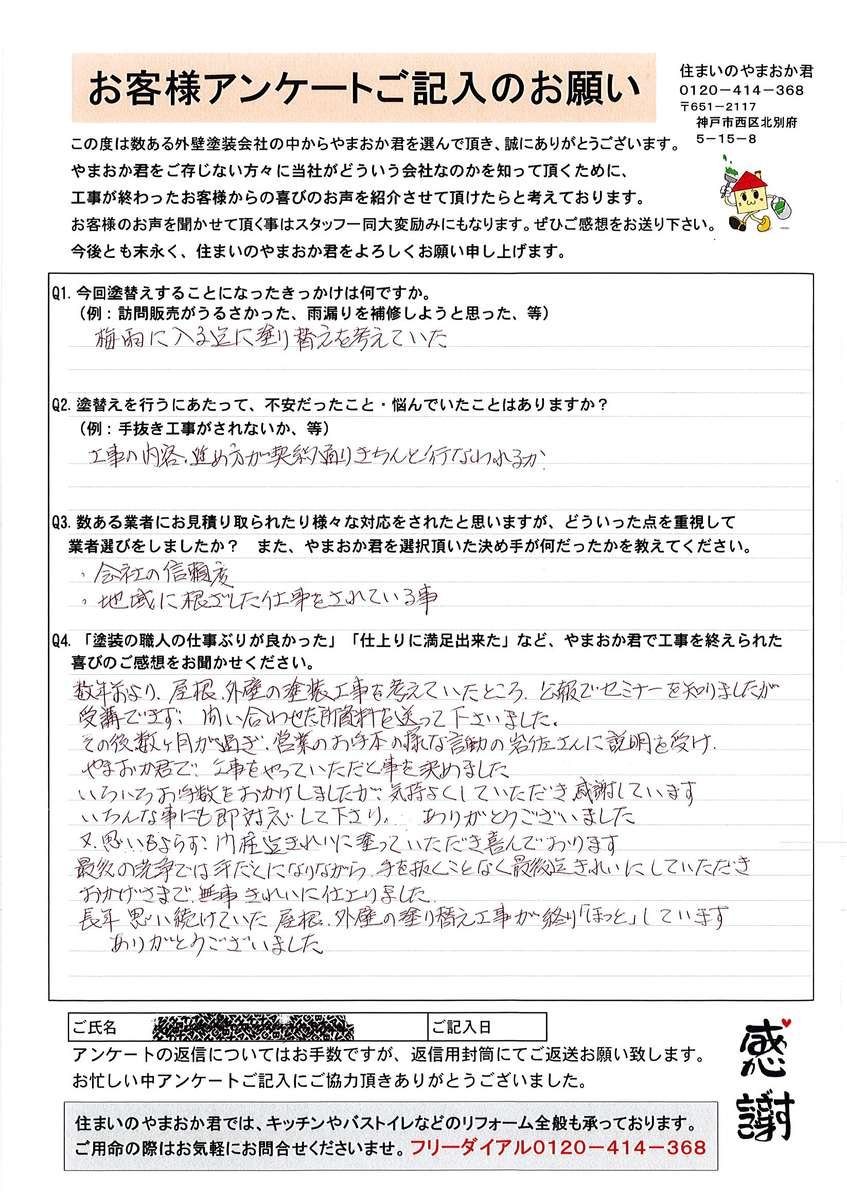 お客様アンケートご記入のお願い
住まいのやまおか君
0120－414－368
〒651－2117
神戸市西区北別府
5－15－8
この度は数ある外壁塗装会社の中からやまおか君を選んで頂き、誠にありがとうございます。
やまおか君をご存じない方々に当社がどういう会社なのかを知って頂くために、
工事が終わったお客様からの喜びのお声を紹介させて頂けたらと考えております。
お客様のお声を聞かせて頂く事はスタッフ一同大変励みにもなります。ぜひご感想をお送り下さい。
今後とも末永く、住まいのやまおか君をよろしくお願い申し上げます。
Q1. 今回塗替えすることになったきっかけは何ですか。
（例：訪問販売がうるさかった、雨漏りを補修しようと思った、等）
梅雨に入る迄に塗り替えを考えていた
Q2. 塗替えを行うにあたって、不安だったこと・悩んでいたことはありますか？
（例：手抜き工事がされないか、等）
工事の内容、進め方が契約通りきちんと行なわれるか
Q3. 数ある業者にお見積り取られたり様々な対応をされたと思いますが、どういった点を重視して
業者選びをしましたか？　また、やまおか君を選択頂いた決め手が何だったかを教えてください。
・会社の信頼度
・地域に根ざした仕事をされている事
Q4. 「塗装の職人の仕事ぶりが良かった」「仕上りに満足出来た」など、やまおか君で工事を終えられた
喜びのご感想をお聞かせください。
数年前より、屋根、外壁の塗装工事を考えていたところ、公報でセミナーを知りましたが
受講できず、問い合わせた所資料を送って下さいました。
その後数ヶ月が過ぎ、営業のお手本の様な言動の岩佐さんに説明を受け、
やまおか君で、工事をやっていただく事を決めました
いろいろお手数をおかけしましたが、気持よくしていただき感謝しています
いろんな事にも即対応して下さり、ありがとうございました
又、思いもよらず、門塀迄きれいに塗っていただき喜んでおります
最後の洗浄では手だくになりながら、手を抜くことなく最後迄きれいにしていただき
おかげさまで、無事きれいに仕上りました
長年思い続けていた屋根、外壁の塗り替え工事が終り「ほっと」しています
ありがとうございました
ご氏名
ご記入日
アンケートの返信についてはお手数ですが、返信用封筒にてご返送お願い致します。
お忙しい中アンケートご記入にご協力頂きありがとうございました。
感謝
住まいのやまおか君では、キッチンやバストイレなどのリフォーム全般も承っております。
ご用命の際はお気軽にお問合せくださいませ。フリーダイアル0120－414－368